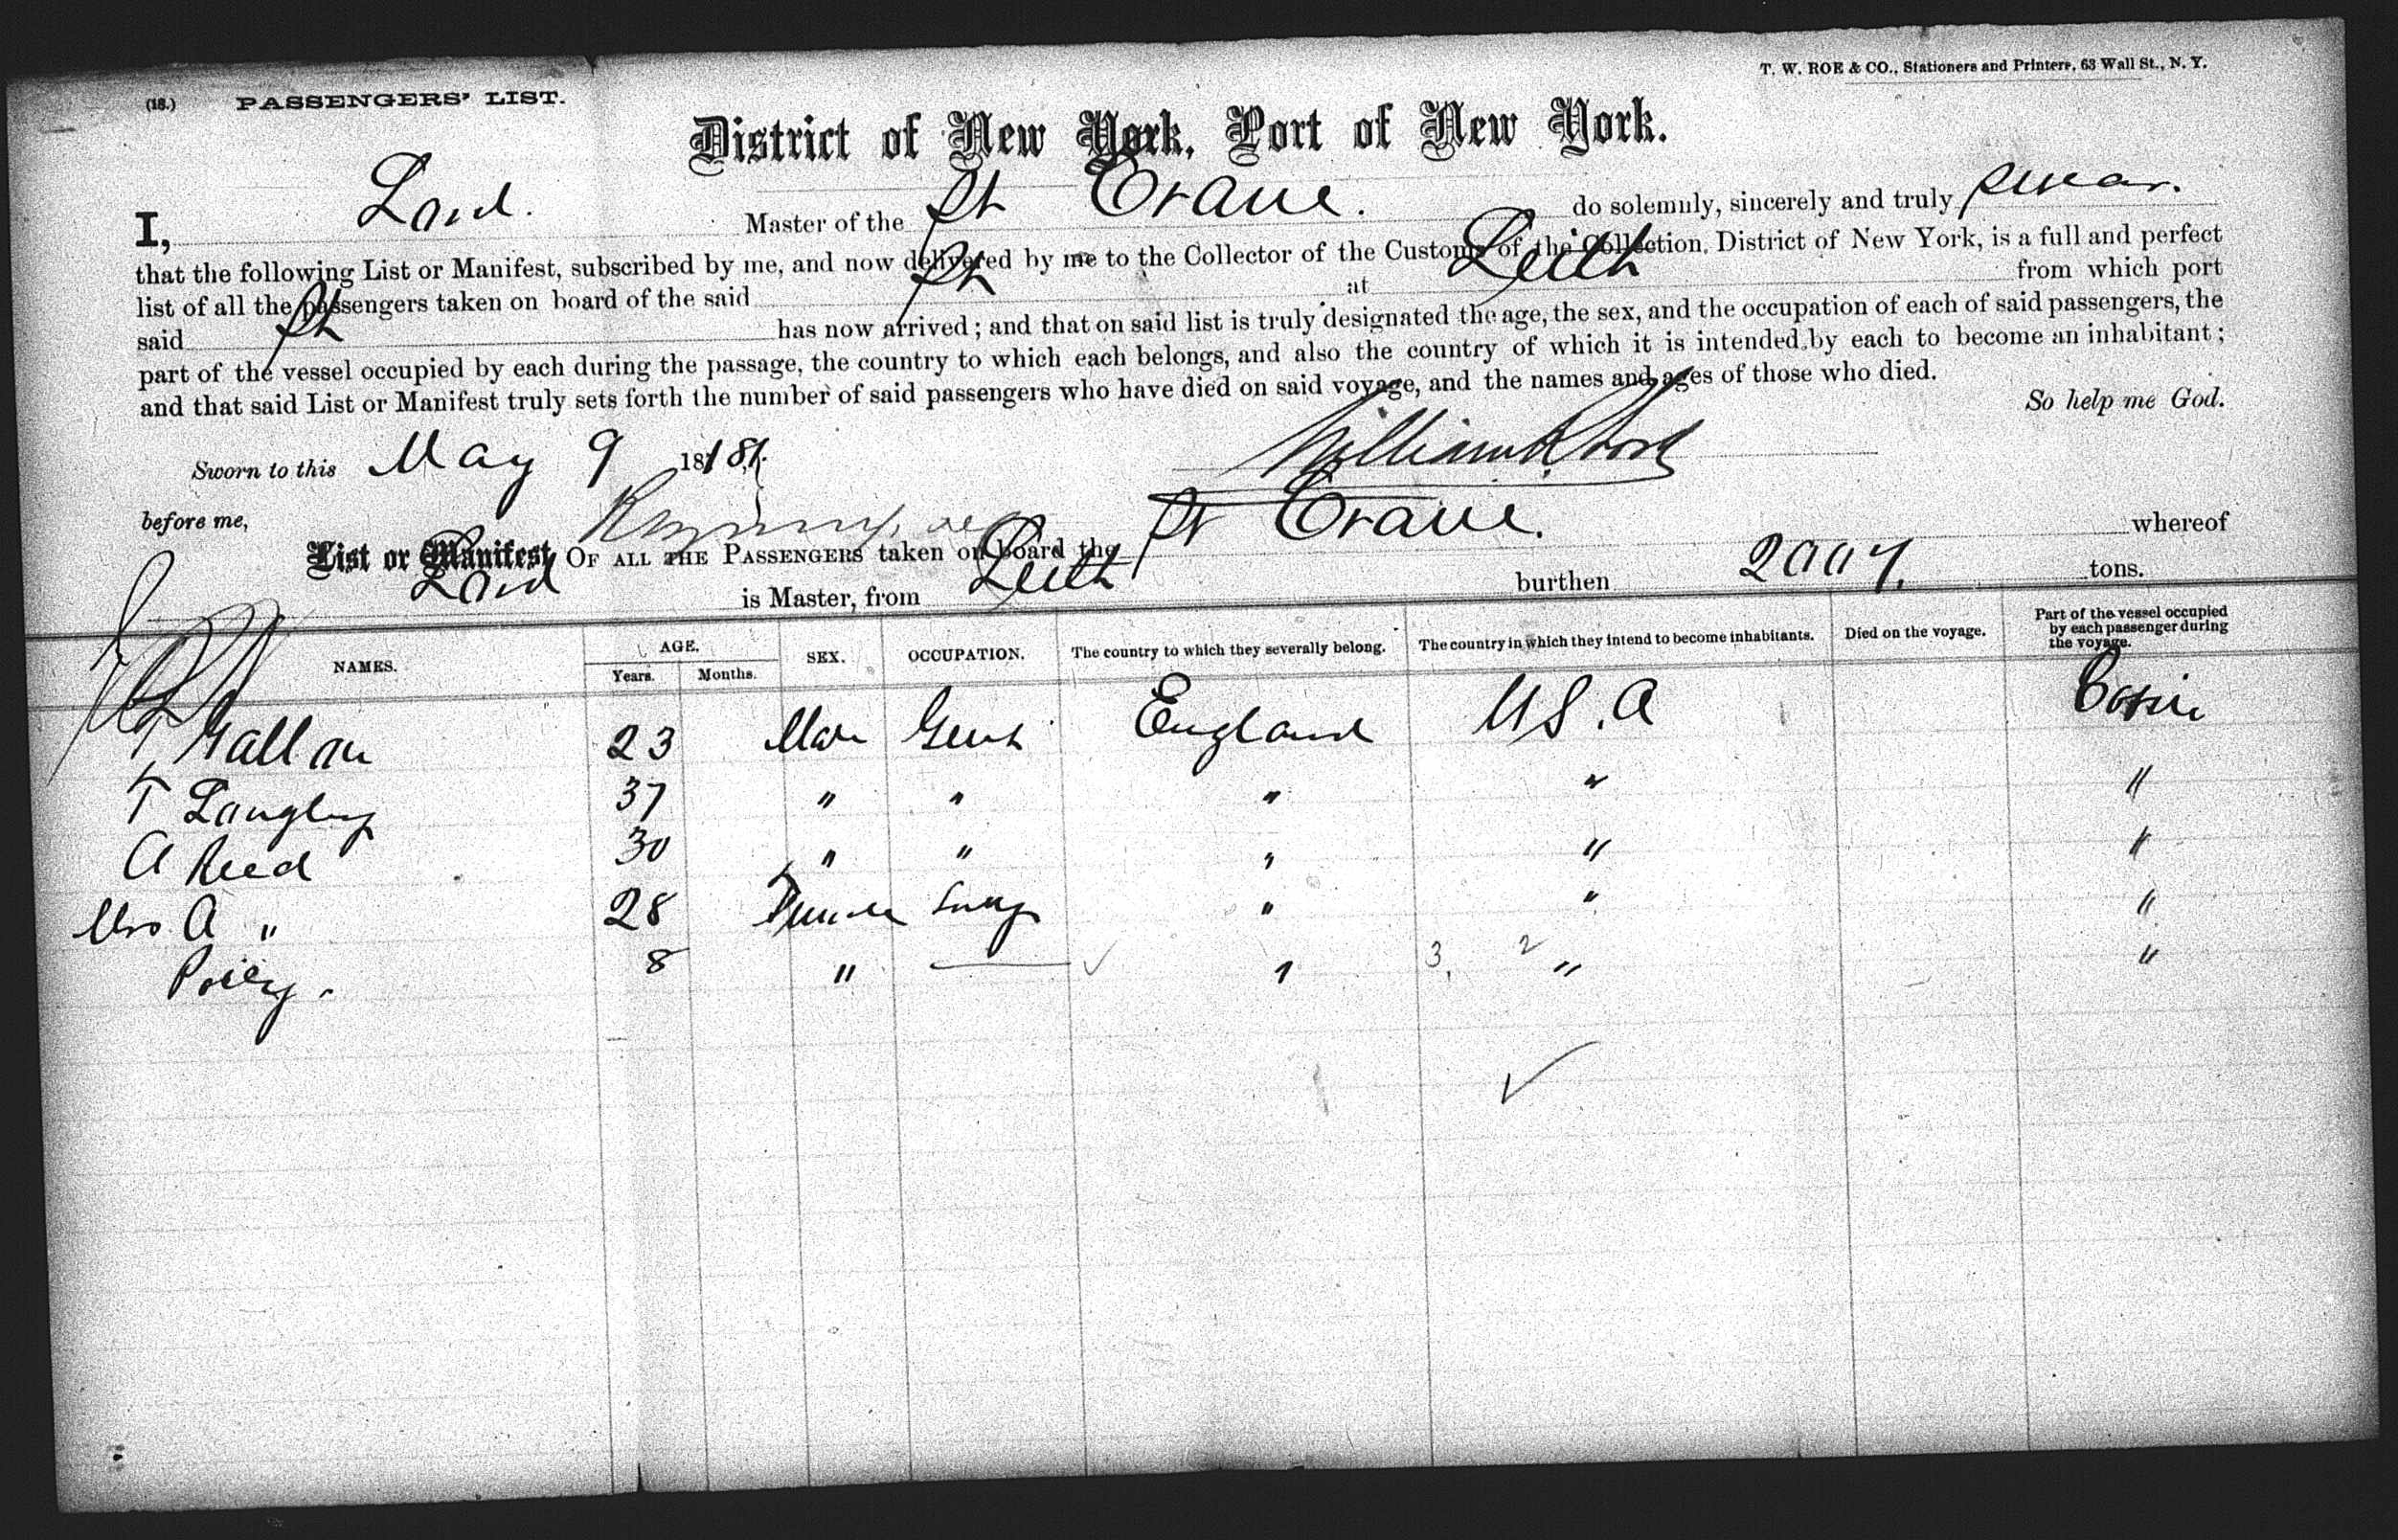 T. W. ROE & CO., Stationers and Printers, 63 Wall St., N. Y.
(18.) PASSENGERS' LIST.
District of New York, Port of New York.
I, Lord. Master of the St Crane. do solemnly, sincerely and truly swear.
that the following List or Manifest, subscribed by me, and now delivered by me to the Collector of the Customs of the Collection, District of New York, is a full and perfect
list of all the passengers taken on board of the said St at Leith from which port
said St has now arrived; and that on said list is truly designated the age, the sex, and the occupation of each of said passengers, the
part of the vessel occupied by each during the passage, the country to which each belongs, and also the country of which it is intended by each to become an inhabitant;
and that said List or Manifest truly sets forth the number of said passengers who have died on said voyage, and the names and ages of those who died.
So help me God.
Sworn to this May 9 18 William R Lord
before me,
List or Manifest OF ALL THE PASSENGERS taken on board the St Crane. whereof
Lord is Master, from Leith burthen tons.
NAMES. AGE. Years. Months. SEX. OCCUPATION. The country to which they severally belong. The country in which they intend to become inhabitants. Died on the voyage. Part of the vessel occupied by each passenger during the voyage.
23 Male Gent England U S. A Cabin
T Langley 37 " " " " "
A Reed 30 " " " " "
Mrs A " 28 " " "
8 " " 3 2 " "